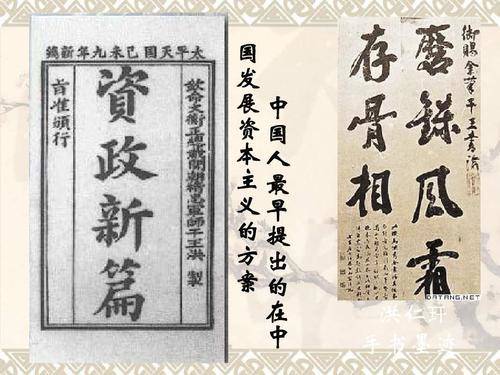 太平天囯己未九年新鐫
欽命文衡正總裁開朝精忠軍師干王洪 製
資政新篇
旨准頒行
中国人最早提出的在中
国发展资本主义的方案
御賜金筆干王書
鍊風霜
存骨相
DATANG.NET
洪仁玕
手书墨迹